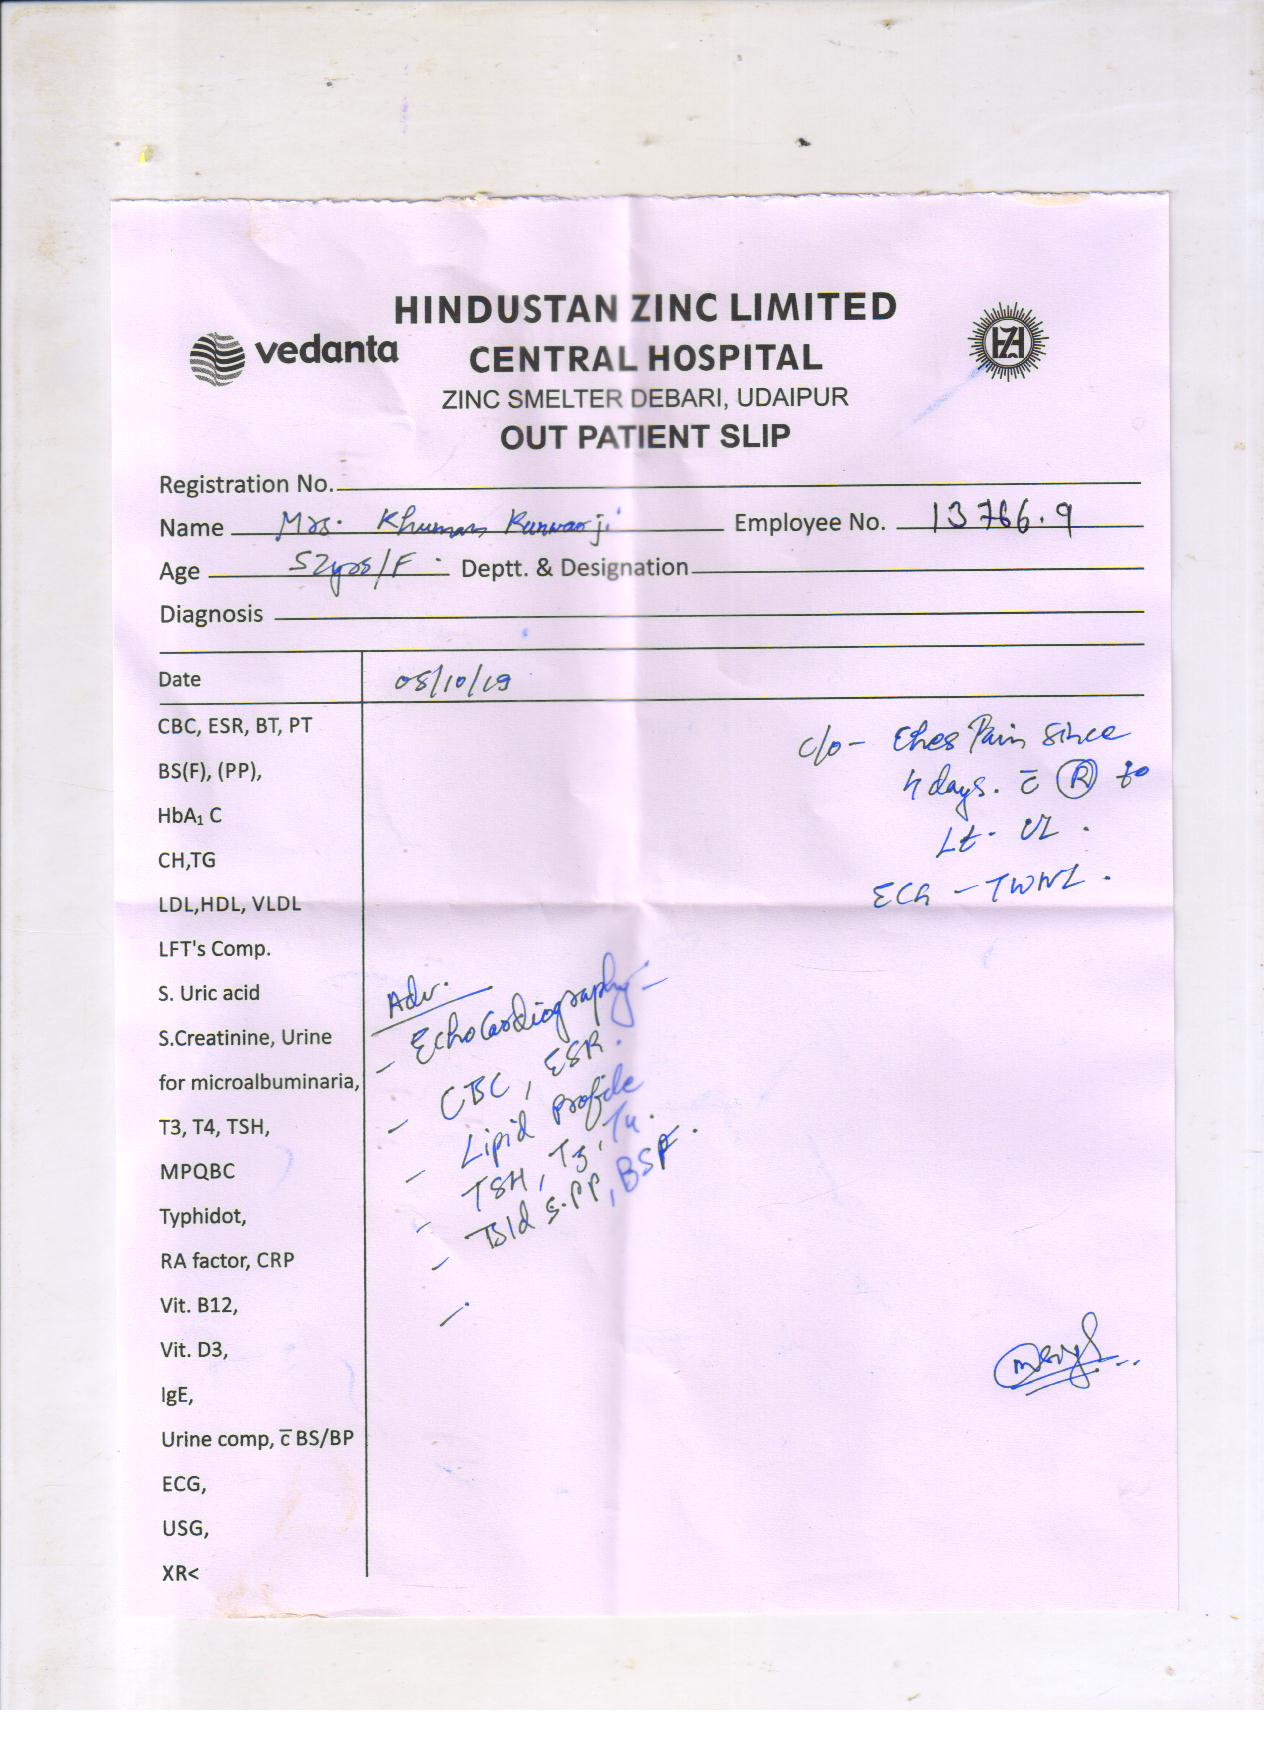 HINDUSTAN ZINC LIMITED
vedanta
CENTRAL HOSPITAL
HZL
ZINC SMELTER DEBARI, UDAIPUR
OUT PATIENT SLIP
Registration No.
Name Mrs. Khuman Kunwar ji Employee No. 13766.9
Age 52yrs/F Deptt. & Designation
Diagnosis
Date 08/10/19
CBC, ESR, BT, PT
BS(F), (PP),
HbA₁ C
CH,TG
LDL,HDL, VLDL
LFT's Comp.
S. Uric acid
S.Creatinine, Urine
for microalbuminaria,
T3, T4, TSH,
MPQBC
Typhidot,
RA factor, CRP
Vit. B12,
Vit. D3,
IgE,
Urine comp, c̅ BS/BP
ECG,
USG,
XR<
c/o - Ches Pain since
4 days. c̅ Ⓡ to
Lt. UL.
ECG - TWNL.
Adv.
- Echocardiography -
- CBC, ESR.
- Lipid Profile
- TSH, T3, T4.
- Bld S.PP, BSF.